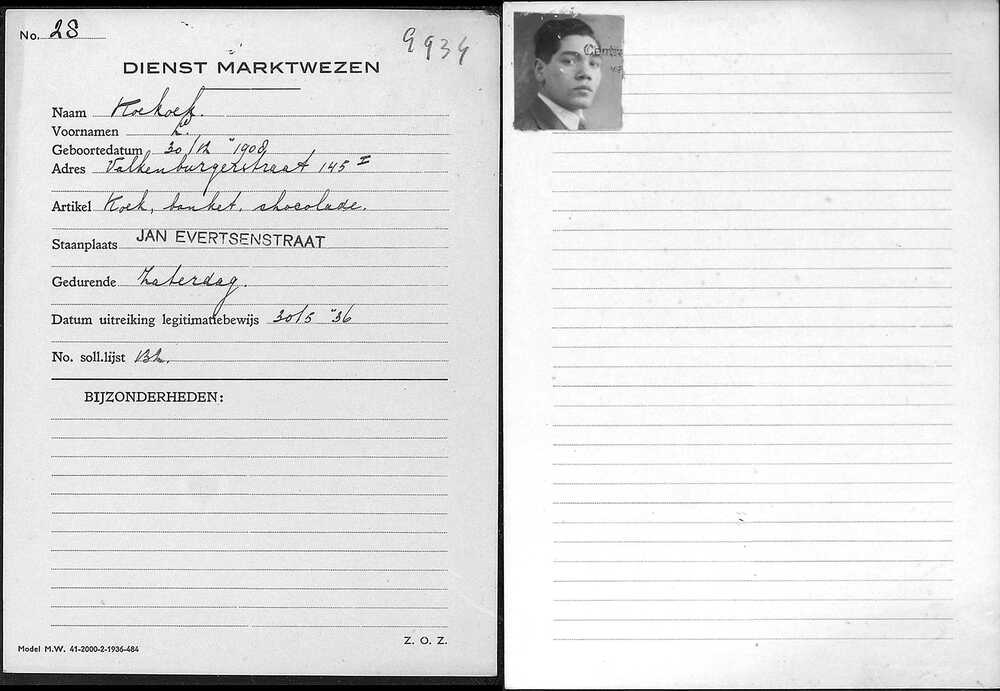 No. 28
9934
DIENST MARKTWEZEN
Naam Koekoek.
Voornamen L.
Geboortedatum 30/12 "1908
Adres Valkenburgerstraat 145 I
Artikel Koek, banket, chocolade.
Staanplaats JAN EVERTSENSTRAAT
Gedurende Zaterdag.
Datum uitreiking legitimatiebewijs 30/5 "36
No. soll.lijst
BIJZONDERHEDEN:
Z. O. Z.
Model M.W. 41-2000-2-1936-484